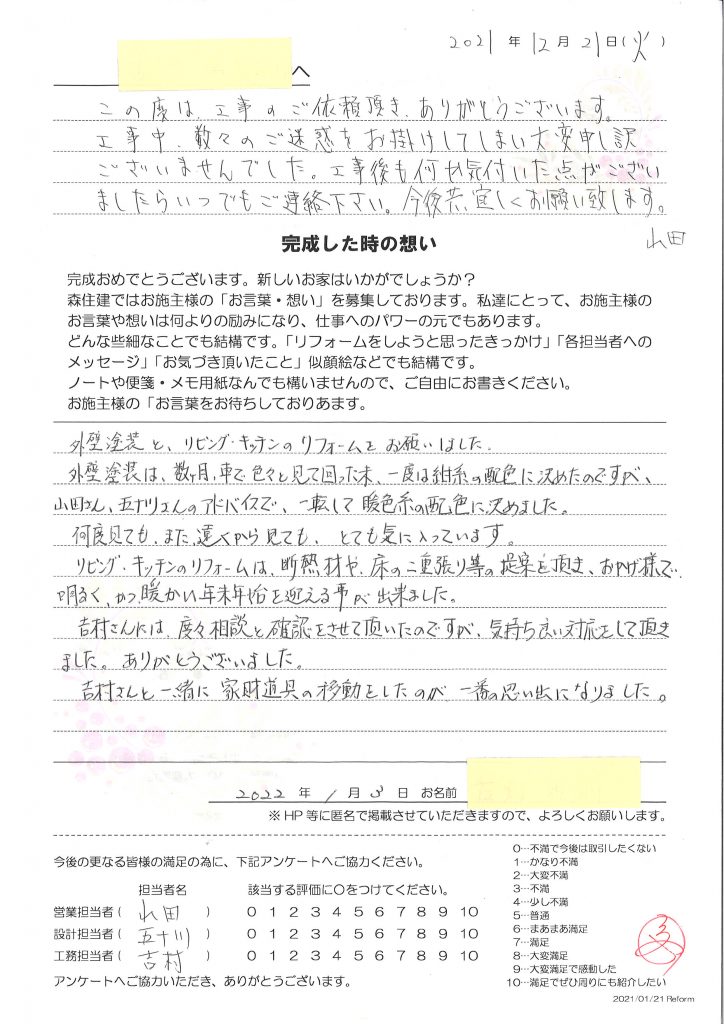 2021 年 12 月 21 日(火)
へ
この度は、工事のご依頼頂き、ありがとうございます。
工事中、数々のご迷惑をお掛けしてしまい大変申し訳
ございませんでした。工事後も何か気付いた点がござい
ましたらいつでもご連絡下さい。今後共、宜しくお願い致します。
山田
完成した時の想い
完成おめでとうございます。新しいお家はいかがでしょうか?
森住建ではお施主様の「お言葉・想い」を募集しております。私達にとって、お施主様の
お言葉や想いは何よりの励みになり、仕事へのパワーの元でもあります。
どんな些細なことでも結構です。「リフォームをしようと思ったきっかけ」「各担当者への
メッセージ」「お気づき頂いたこと」似顔絵などでも結構です。
ノートや便箋・メモ用紙なんでも構いませんので、ご自由にお書きください。
お施主様の「お言葉をお待ちしておりあます。
外壁塗装と、リビング・キッチンのリフォームをお願いしました.
外壁塗装は、数ヶ月、車で色々と見て回った末、一度は紺系の配色に決めたのですが、
山田さん、五十川さんのアドバイスで、一転して暖色系の配色に決めました。
何度見ても、また、遠くから見ても、とても気に入っています。
リビング・キッチンのリフォームは、断熱材や、床の二重張り等の提案を頂き、おかげ様で、
明るく、かつ、暖かい年末年始を迎える事が出来ました。
吉村さんには、度々相談と確認をさせて頂いたのですが、気持ち良い対応をして頂き
ました。ありがとうございました。
吉村さんと一緒に家財道具の移動をしたのが一番の思い出になりました。
2022 年 1 月 3 日 お名前
※HP 等に匿名で掲載させていただきますので、よろしくお願いします。
今後の更なる皆様の満足の為に、下記アンケートへご協力ください。
担当者名 該当する評価に〇をつけてください。
営業担当者( 山田 ) 0 1 2 3 4 5 6 7 8 9 10
設計担当者( 五十川 ) 0 1 2 3 4 5 6 7 8 9 10
工務担当者( 吉村 ) 0 1 2 3 4 5 6 7 8 9 10
アンケートへご協力いただき、ありがとうございます。
0…不満で今後は取引したくない
1…かなり不満
2…大変不満
3…不満
4…少し不満
5…普通
6…まあまあ満足
7…満足
8…大変満足
9…大変満足で感動した
10…満足でぜひ周りにも紹介したい
2021/01/21 Reform